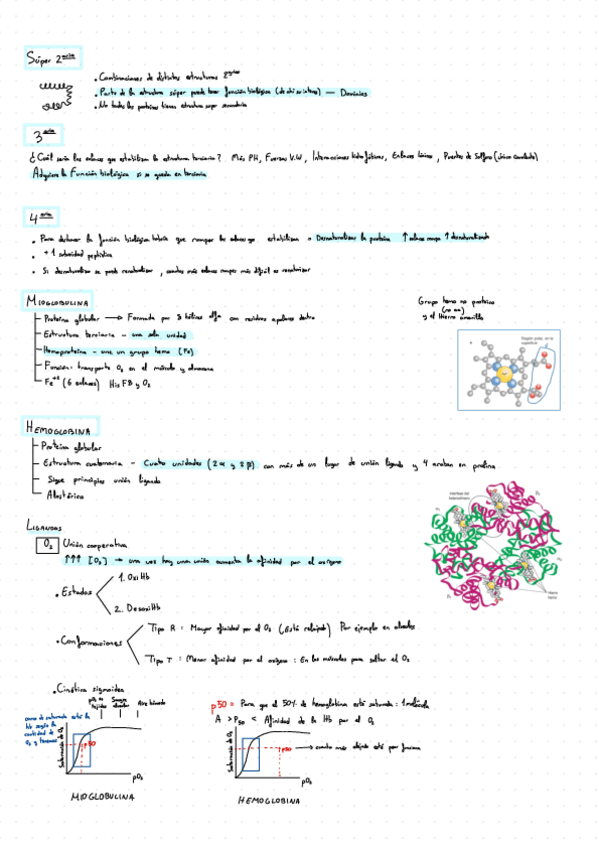 Súper 2aria
• Combinaciones de distintas estructuras 2arias
• Parte de la estructura súper puede tener función biológica — Dominios
• No todas las proteínas tienen estructura super secundaria
3aria
¿Cuál serán los enlaces que estabilizan la estructura terciaria? Más PH, Fuerzas V.W, Interacciones hidrofóbicas, Enlaces iónicos, Puentes de Sulfuro (único covalente)
Adquiere la Función biológica si se queda en terciaria
4aria
• Para destruir la función biológica habría que romper los enlaces que estabilizan = Desnaturalizar la proteína ↑ enlaces rompo ↑ desnaturalizada
• + 1 subunidad peptídica
• Si desnaturalizo se puede renaturalizar, cuantos más enlaces rompes más difícil es renaturizar
MIOGLOBULINA
Proteína globular → Formada por 8 hélices alfa con residuos apolares dentro
Estructura terciaria - una sola unidad
Hemoproteína - une un grupo hemo (Fe)
Función: transporta O2 en el músculo y almacena
Fe+2 (6 enlaces) His F8 y O2
Grupo hemo no proteico
(no aa)
y el Hierro amarillo
Región polar, en la superficie
HEMOGLOBINA
Proteína globular
Estructura cuaternaria - Cuatro unidades (2α y 2β) con más de un lugar de unión ligando y 4 cadenas en proteína
Sigue principios unión ligando
Alostérica
Interfase del heterodímero
Grupo hemo
LIGANDOS
O2 Unión cooperativa
↑↑↑ [O2] → una vez hay una unión aumenta la afinidad por el oxígeno
• Estados
1. OxiHb
2. DesoxiHb
• Conformaciones
Tipo R : Mayor afinidad por el O2 (Está relajado) Por ejemplo en alveolos
Tipo T : Menor afinidad por el oxígeno : En los músculos para soltar el O2
• Cinética sigmoidea
pO2 en tejidos
Sangre
Aire
como de saturada está la Hb según la cantidad de O2 y tenemos
Saturación de O2
p50
pO2
MIOGLOBULINA
p50 = Para que el 50% de hemoglobina esté saturada : 1 molécula
A > P50 < Afinidad de la Hb por el O2
Saturación de O2
p50
→ cuanto más alejado está
pO2
HEMOGLOBINA